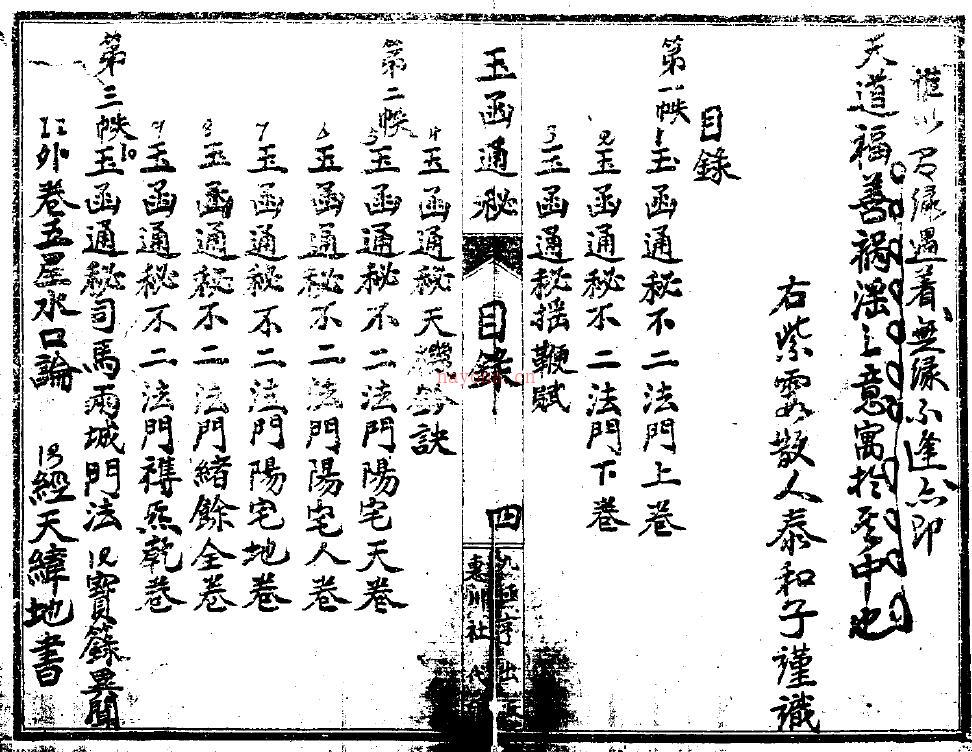 有緣遇着無緣不逢亦即
天道福善禍淫之意寓於其中也
右紫霞散人泰和子謹識
目錄
第一帙 1 玉函通秘不二法門上卷
2 玉函通秘不二法門下卷
3 玉函通秘搖鞭賦
玉函通秘 目錄 四
惠川社
4 玉函通秘天機 訣
第二帙 5 玉函通秘不二法門陽宅天卷
6 玉函通秘不二法門陽宅人卷
7 玉函通秘不二法門陽宅地卷
8 玉函通秘不二法門緒餘全卷
9 玉函通秘不二法門 乾卷
第三帙 10 玉函通秘司馬雨城門法 12 寶籙異聞
11 外卷五星水口論 13 經天緯地書
nayona.cn